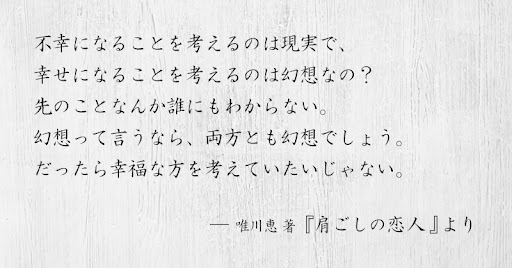 不幸になることを考えるのは現実で、
幸せになることを考えるのは幻想なの？
先のことなんか誰にもわからない。
幻想って言うなら、両方とも幻想でしょう。
だったら幸福な方を考えていたいじゃない。
― 唯川恵 著『肩ごしの恋人』より